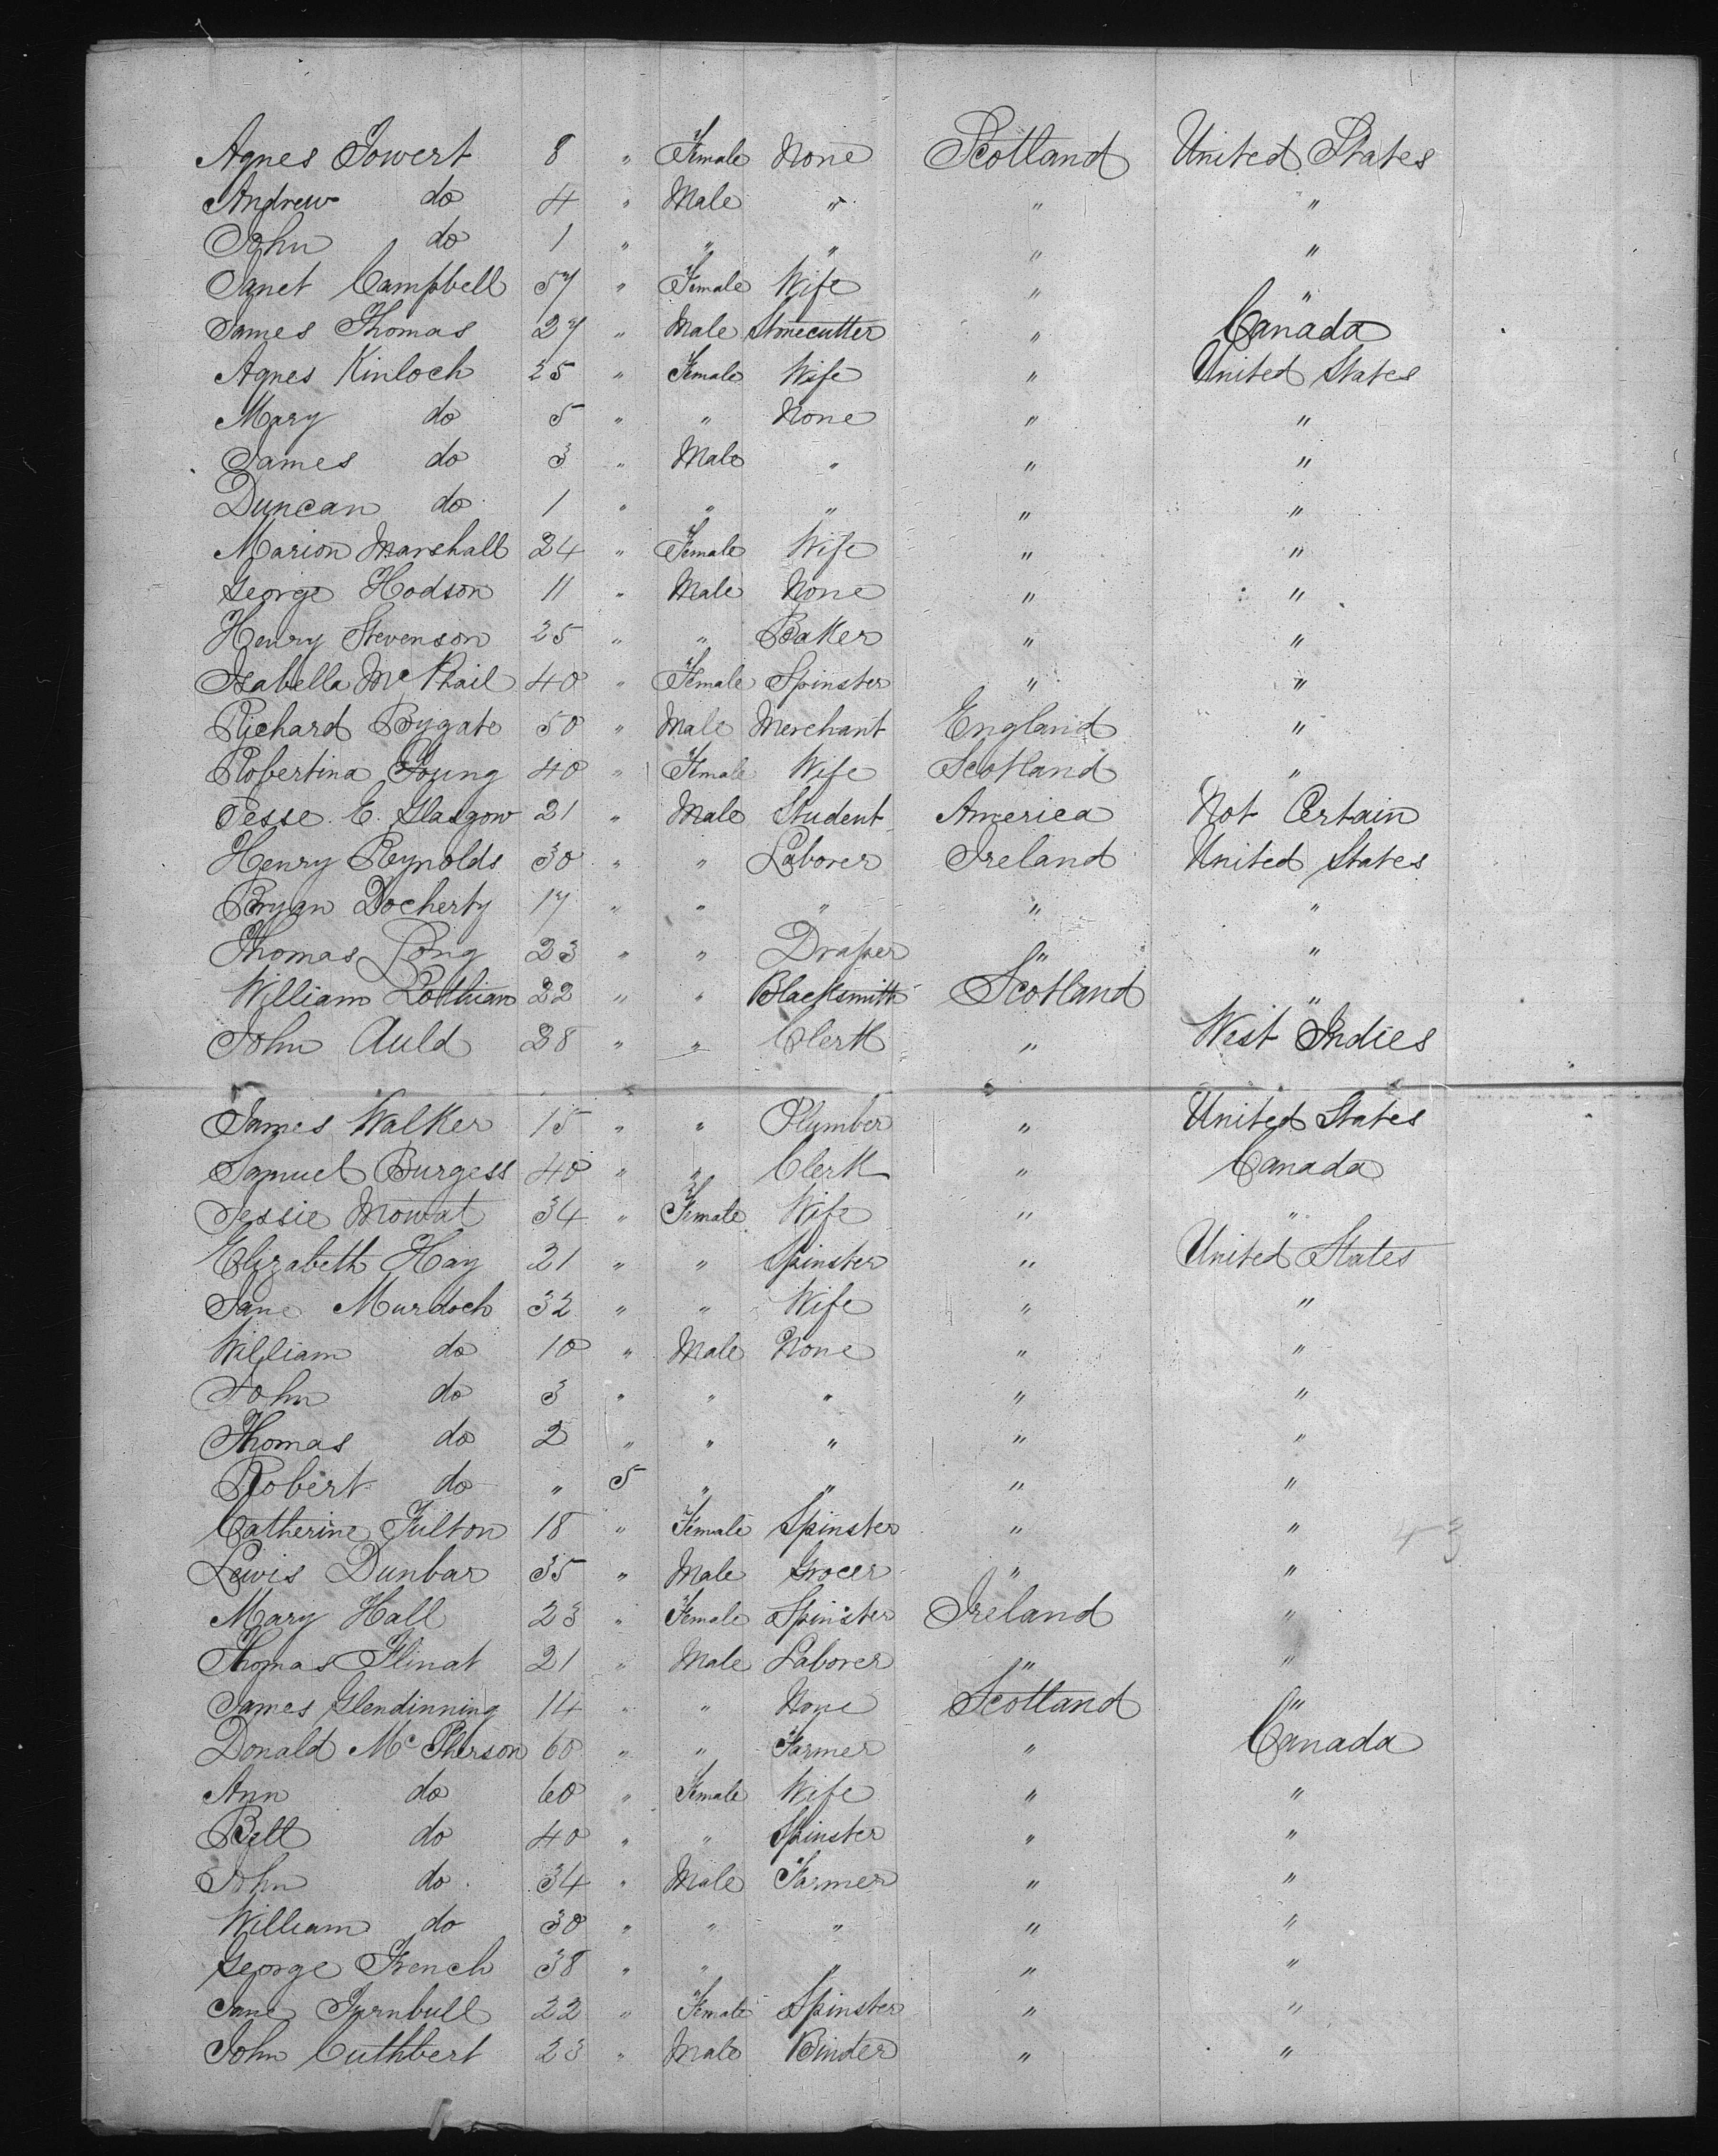 Agnes Jowert 8 " Female None Scotland United States
Andrew do 4 " Male " " "
John do 1 " " " " "
Janet Campbell 57 " Female Wife " "
James Thomas 27 " Male Stonecutter " Canada
Agnes Kinloch 25 " Female Wife " United States
Mary do 5 " " None " "
James do 3 " Male " " "
Duncan do 1 " " " " "
Marion Marshall 24 " Female Wife " "
George Hodson 11 " Male None " "
Henry Stevenson 25 " " Baker " "
Isabella Mc Phail 40 " Female Spinster " "
Richard Bygate 50 " Male Merchant England "
Robertina Young 40 " Female Wife Scotland "
Jesse E. Glasgow 21 " Male Student America Not Certain
Henry Reynolds 30 " " Laborer Ireland United States
Bryan Docherty 17 " " " " "
Thomas Long 23 " " Draper " "
William Lothian 22 " " Blacksmith Scotland "
John Auld 28 " " Clerk " West Indies
James Walker 15 " " Plumber " United States
Samuel Burgess 40 " " Clerk " Canada
Jessie Mowat 34 " Female Wife " "
Elizabeth Hay 21 " " Spinster " United States
Jane Murdoch 32 " " Wife " "
William do 10 " Male None " "
John do 3 " " " " "
Thomas do 2 " " " " "
Robert do " 5 " " " "
Catherine Fulton 18 " Female Spinster " " 43
Lewis Dunbar 35 " Male Grocer " "
Mary Hall 23 " Female Spinster Ireland "
Thomas Flinat 21 " Male Laborer " "
James Glendinning 14 " " None Scotland "
Donald Mc Pherson 60 " " Farmer " Canada
Ann do 60 " Female Wife " "
Bell do 40 " " Spinster " "
John do 34 " Male Farmer " "
William do 30 " " " " "
George French 38 " " " " "
Jane Turnbull 22 " Female Spinster " "
John Cuthbert 23 " Male Binder " "